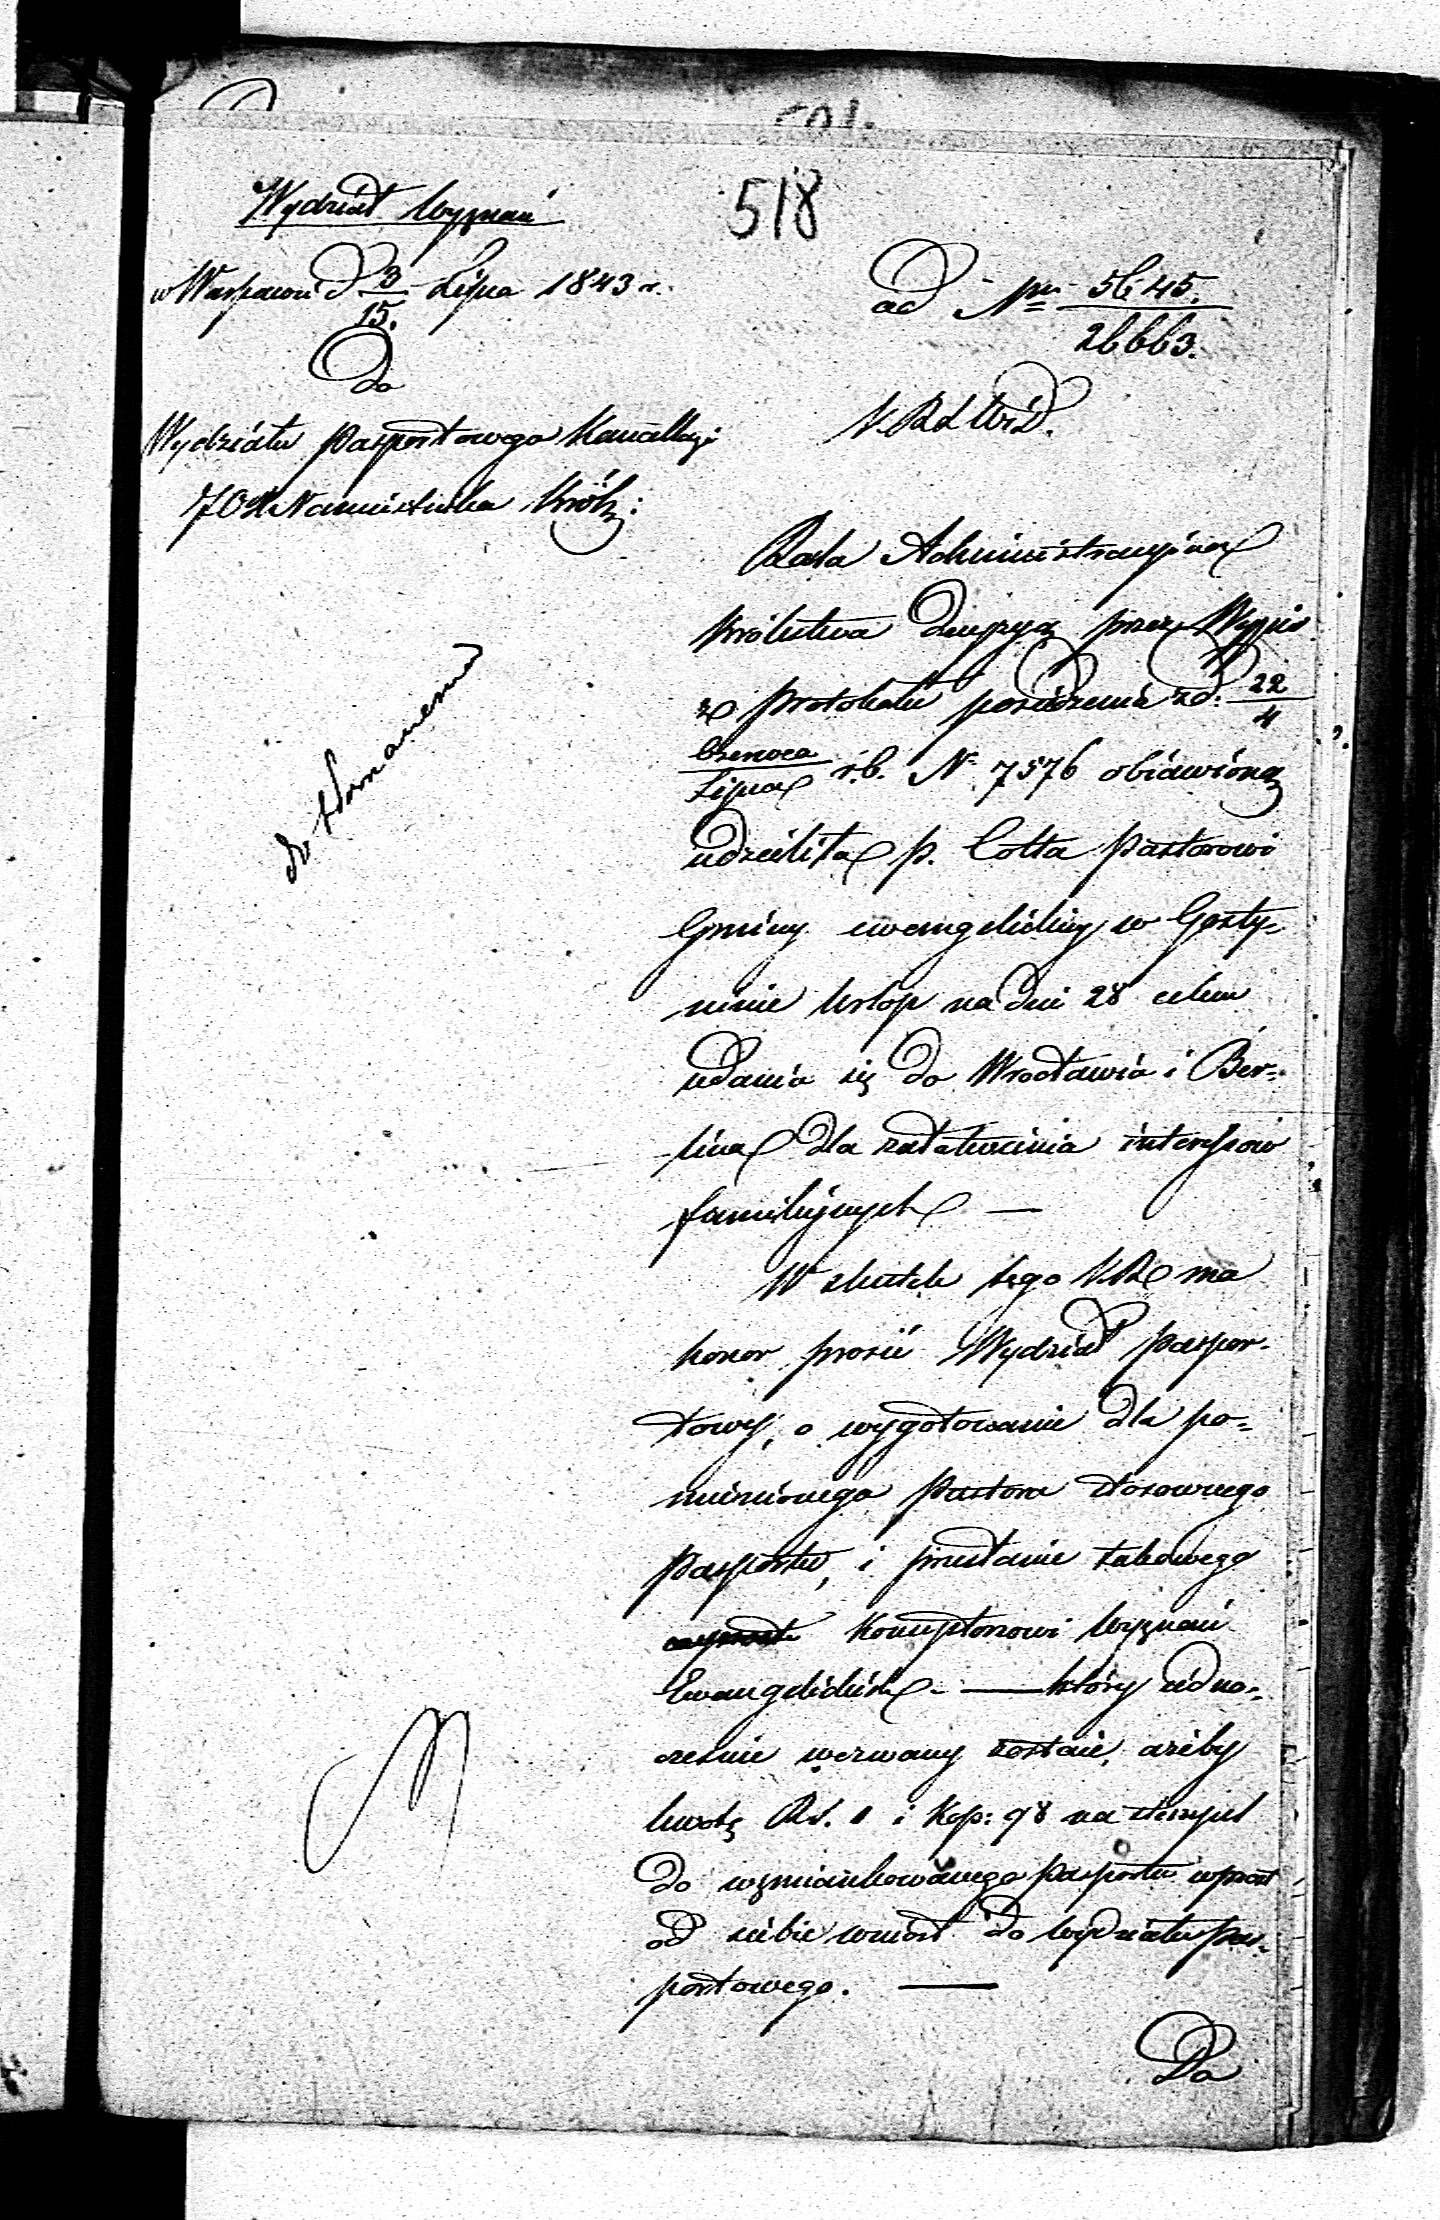 501.
518
Wydział Wyznań
w Warszawie d 3/15. Lipca 1843 r.
Do
Wydziału Paszportowego Kancellaryi
JO X Namiestnika Król:
ad Nr 5645./26663.
K. R. S. W. i D.
Rada Administracyina
Królestwa decyzyą przez Wypis
z protokułu posiedzenia z d: 22/4
Czerwca/Lipca r. b. N 7576 obiawioną
udzieliła p. Cotta Pastorowi
Gminy ewangelickiey w Gosty-
ninie Urlop na dni 28 celem
udania się do Wrocławia i Ber-
lina dla załatwienia interessów
familijnych —
W skutek tego K. R. ma
honor prosić Wydział Paszpor-
towy, o wygotowanie dla po-
mienionego Pastora stosownego
Paszportu, i przesłanie takowego
Konsystorzowi Wyznań
Ewangelickich — który iedno-
cześnie wezwany zostaie, ażeby
kwotę Rs. 1 i Kop: 98 na stempel
do wzmiankowanego paszportu wprost
od siebie wniósł do wydziału Pasz-
portowego. —
Do